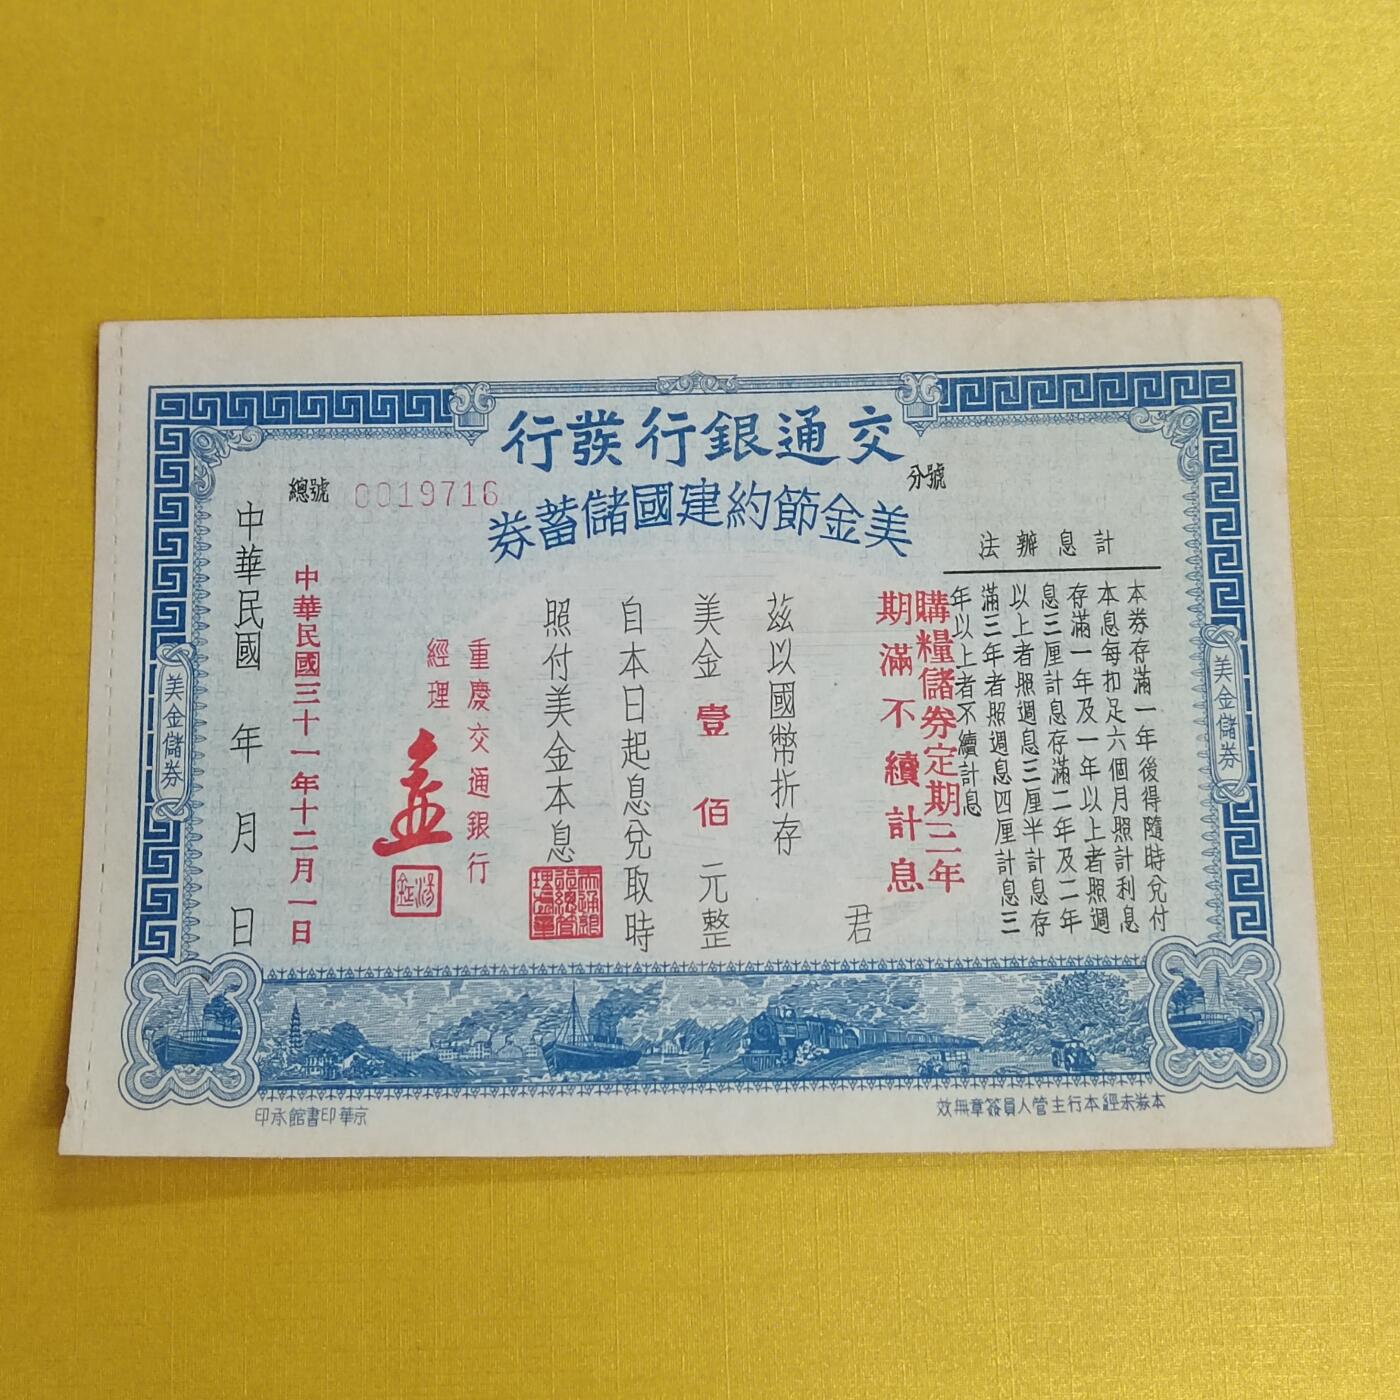 交通銀行發行
美金節約建國儲蓄券
分號
總號 0019716
計息辦法
本券存滿一年後得隨時兌付
本息每扣足六個月照計利息
存滿一年及一年以上者照週
息三厘計息存滿二年及二年
以上者照週息三厘半計息存
滿三年者照週息四厘計息三
年以上者不續計息
購糧儲券定期三年
期滿不續計息
君
茲以國幣折存
美金壹佰元整
自本日起息兌取時
照付美金本息
重慶交通銀行
經理
中華民國三十一年十二月一日
中華民國 年 月 日
美金儲券
美金儲券
本券未經本行主管人員簽章無效
京華印書館承印